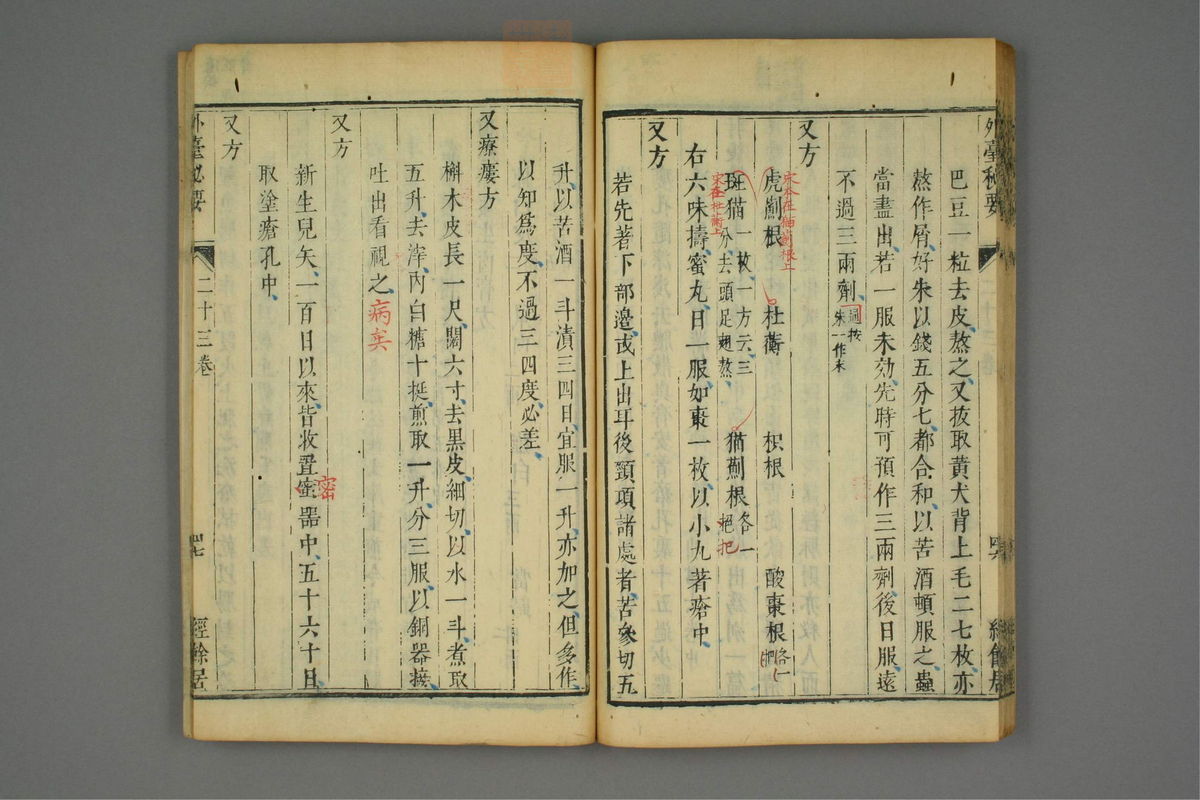 外臺秘要
巴豆一粒去皮熬之又拔取黃犬背上毛二七枚亦
熬作屑好朱以錢五分七都合和以苦酒頓服之蟲
當盡出若一服未効先時可預作三兩劑後日服遠
不過三兩劑過按朱一作末
又方
宋本在細薊根上
虎薊根 杜蘅 枳根 酸棗根各一把
宋在杜蘅上
斑猫一枚一方云三分去頭足翅熬 猫薊根各一把 把
右六味擣蜜丸日一服如棗一枚以小丸著瘡中
又方
若先著下部邊或上出耳後頸項諸處者苦參切五
升以苦酒一斗漬三四日宜服一升亦加之但多作
以知爲度不過三四度必差
又療瘻方
槲木皮長一尺闊六寸去黑皮細切以水一斗煮取
五升去滓內白糖十挺煎取一升分三服以銅器接
吐出看視之病矣
又方
新生兒矢一百日以來皆收置蜜器中五十六十日
密
取塗瘡孔中
又方
外臺秘要
二十三卷
四七
經餘居